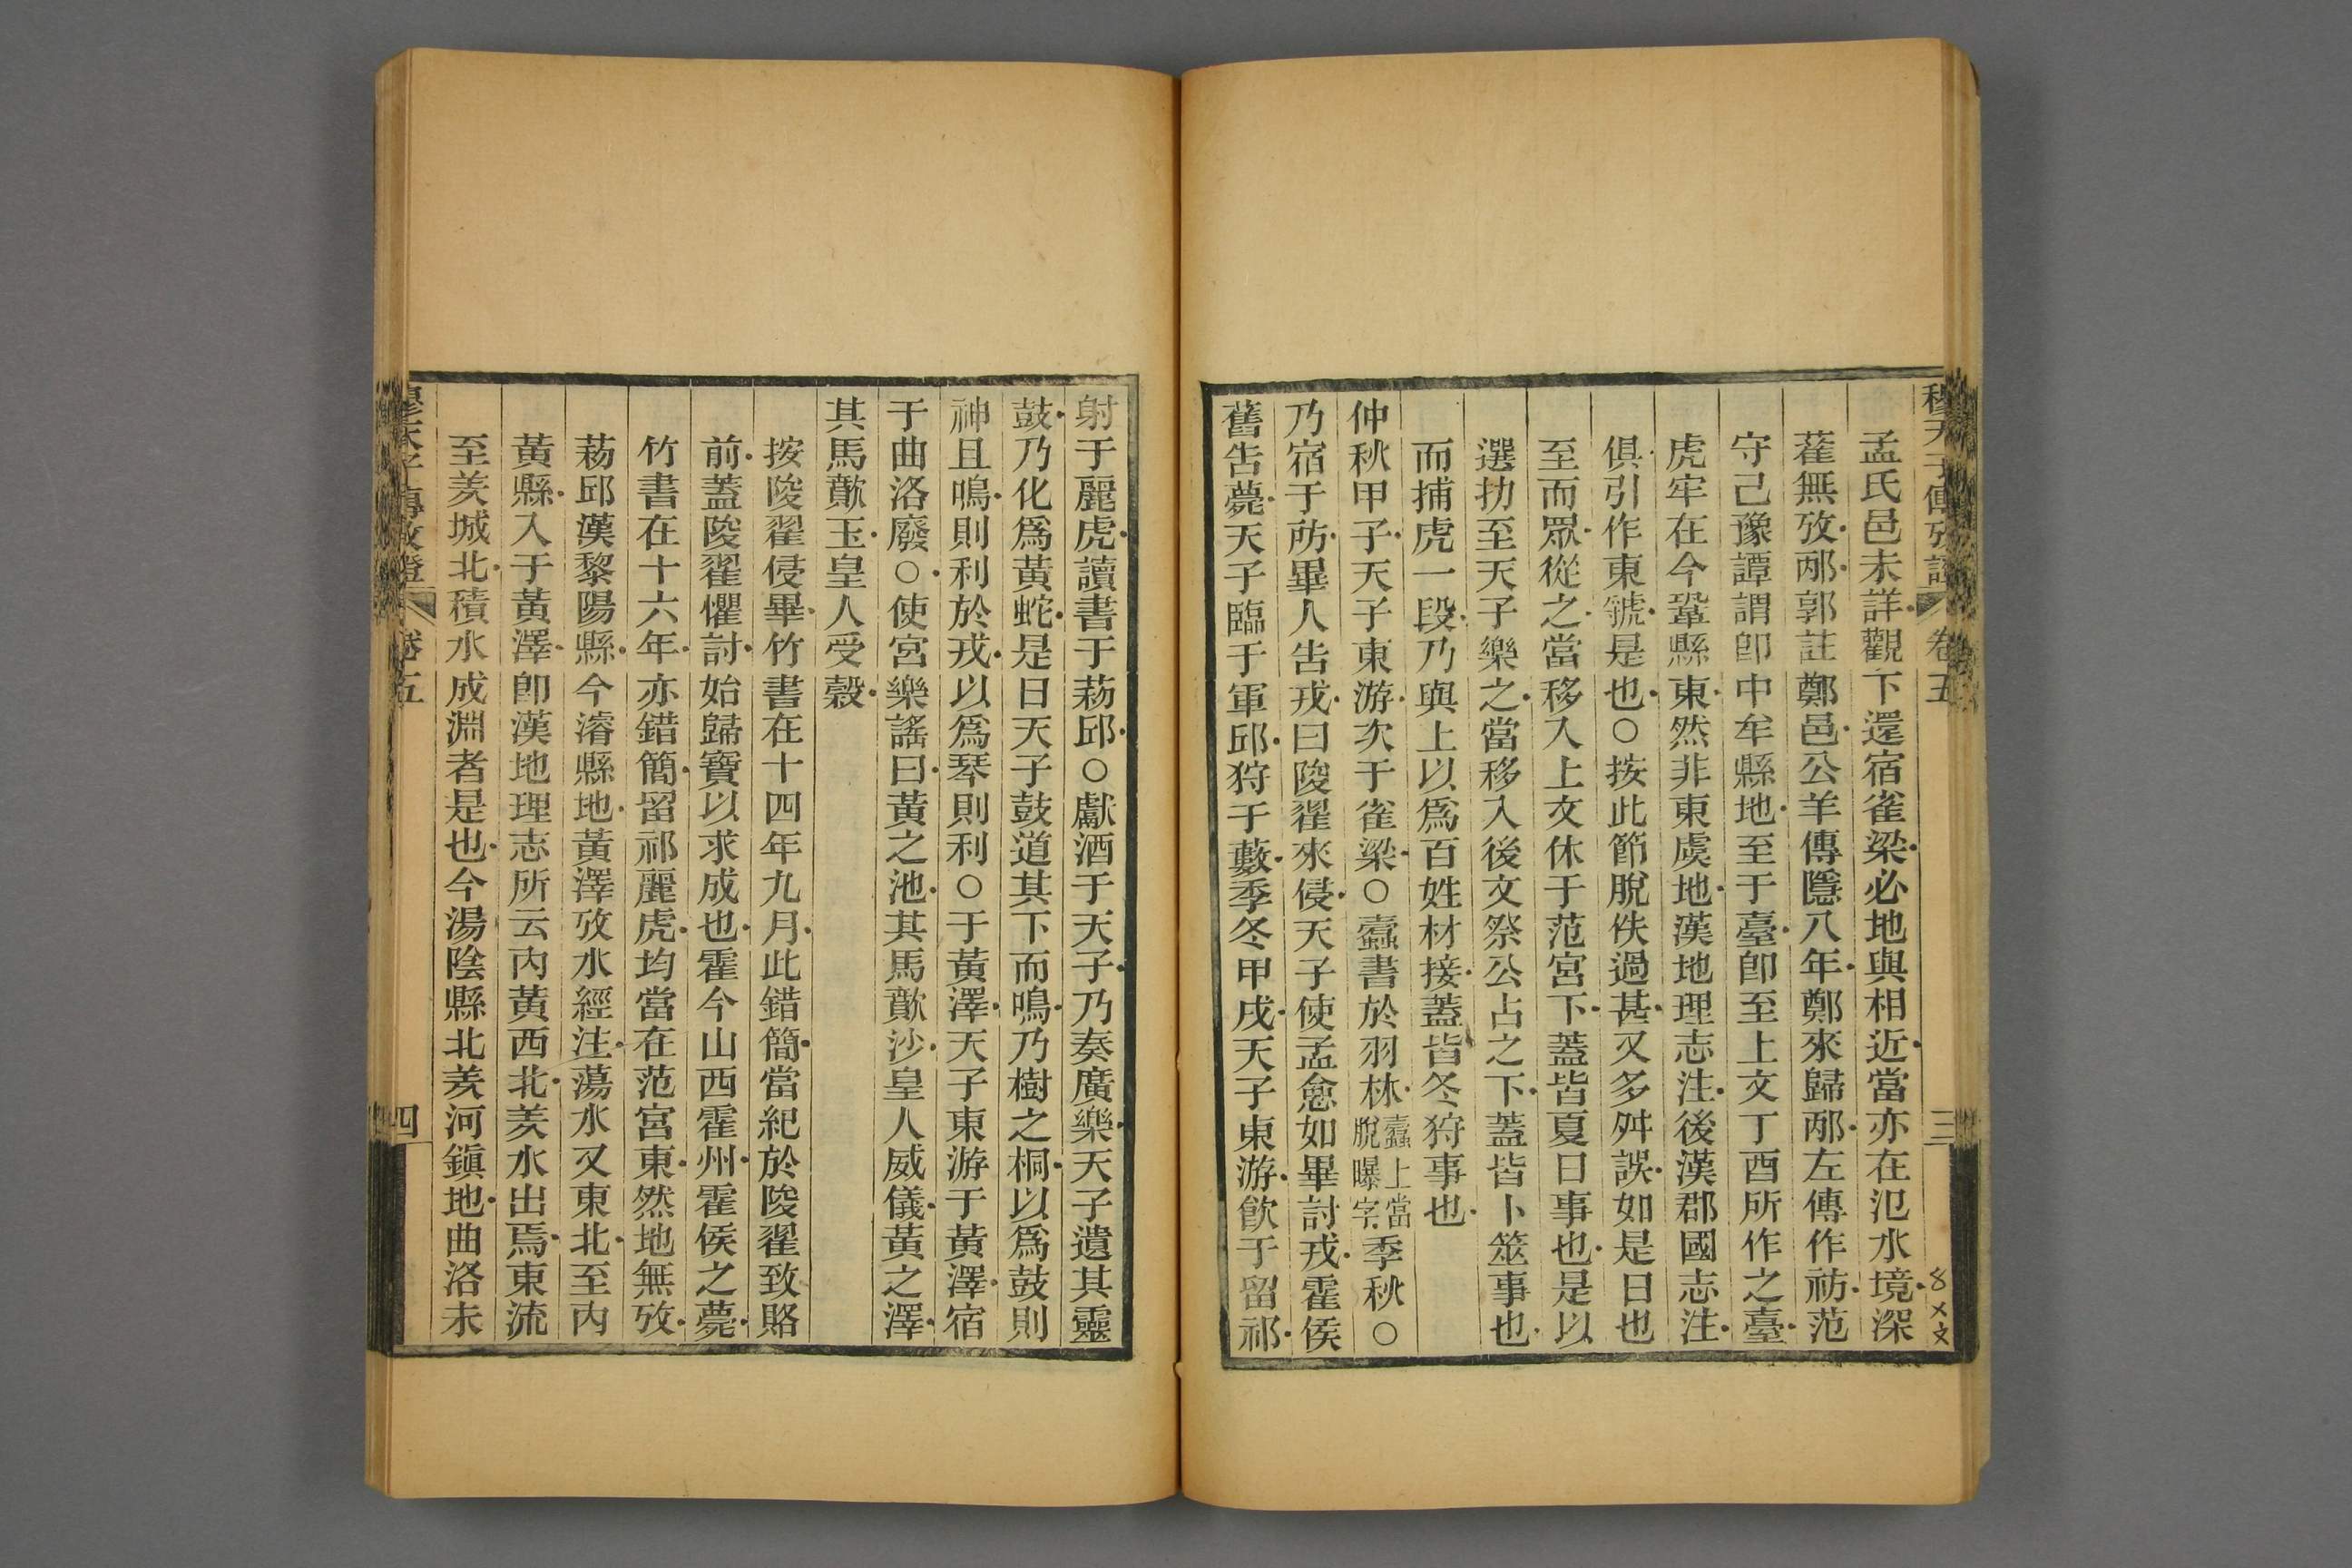 穆天子傳攷證 卷五 三
孟氏邑未詳觀下還宿雀梁必地與相近當亦在氾水境深
雚無攷邴郭註鄭邑公羊傳隱八年鄭來歸邴左傳作祊范
守己豫譚謂卽中牟縣地至于臺卽至上文丁酉所作之臺
虎牢在今鞏縣東然非東虞地漢地理志注後漢郡國志注
俱引作東虢是也○按此節脫佚過甚又多舛誤如是日也
至而眾從之當移入上文休于范宮下蓋皆夏日事也是以
選扐至天子樂之當移入後文祭公占之下蓋皆卜筮事也
而捕虎一段乃與上以爲百姓材接蓋皆冬狩事也
仲秋甲子天子東游次于雀梁○蠹書於羽林蠹上當脫曝字季秋○
乃宿于祊畢人告戎曰陖翟來侵天子使孟悆如畢討戎霍侯
舊告薨天子臨于軍邱狩于藪季冬甲戌天子東游飮于留祁
射于麗虎讀書于菞邱○獻酒于天子乃奏廣樂天子遺其靈
鼓乃化爲黃蛇是日天子鼓道其下而鳴乃樹之桐以爲鼓則
神且鳴則利於戎以爲琴則利○于黃澤天子東游于黃澤宿
于曲洛廢○使宮樂謠曰黃之池其馬歕沙皇人威儀黃之澤
其馬歕玉皇人受榖
按陖翟侵畢竹書在十四年九月此錯簡當紀於陖翟致賂
前蓋陖翟懼討始歸寶以求成也霍今山西霍州霍侯之薨
竹書在十六年亦錯簡留祁麗虎均當在范宮東然地無攷
菞邱漢黎陽縣今濬縣地黃澤攷水經注蕩水又東北至內
黃縣入于黃澤卽漢地理志所云內黃西北羑水出焉東流
至羑城北積水成淵者是也今湯陰縣北羑河鎭地曲洛未
穆天子傳攷證 卷五 四